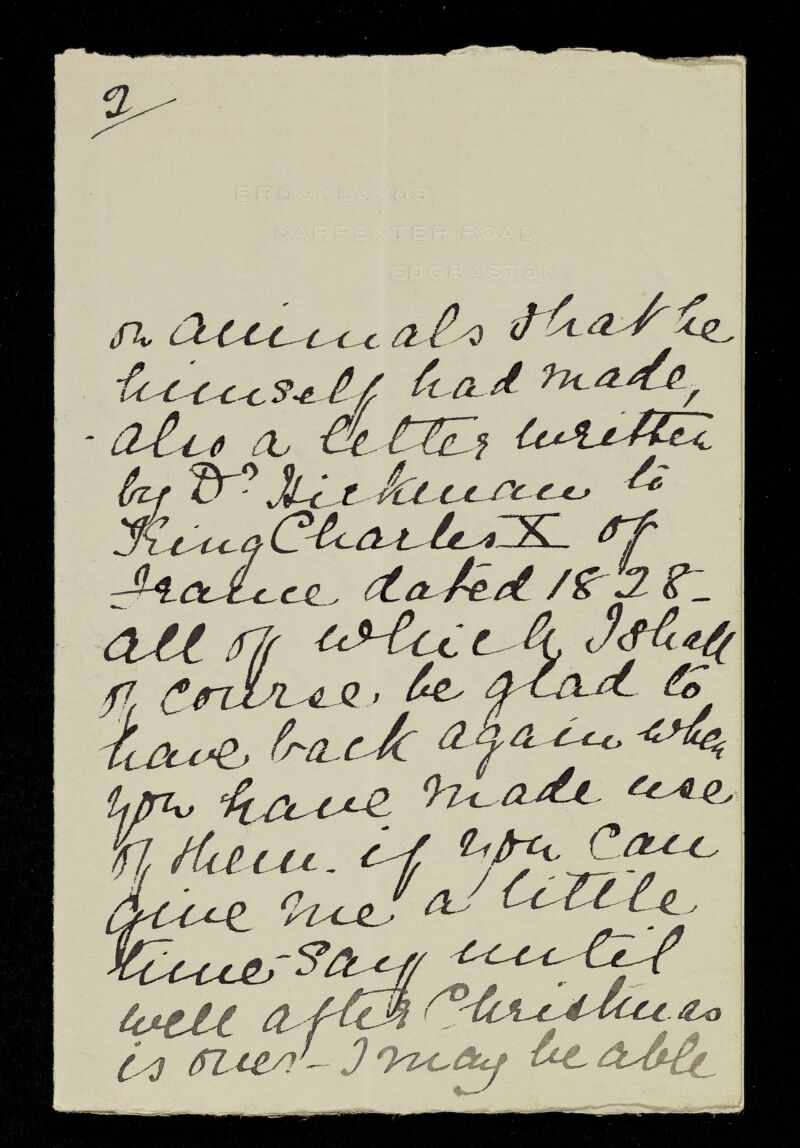 2
BROOKLANDS,
CARPENTER ROAD,
EDGBASTON.
on animals that he
himself had made,
also a letter written
by Dr Hickman to
King Charles X of
France dated 1828 -
all of which I shall
of course be glad to
have back again when
you have made use
of them. if you can
give me a little
time - say until
well after Christmas
is over - I may be able